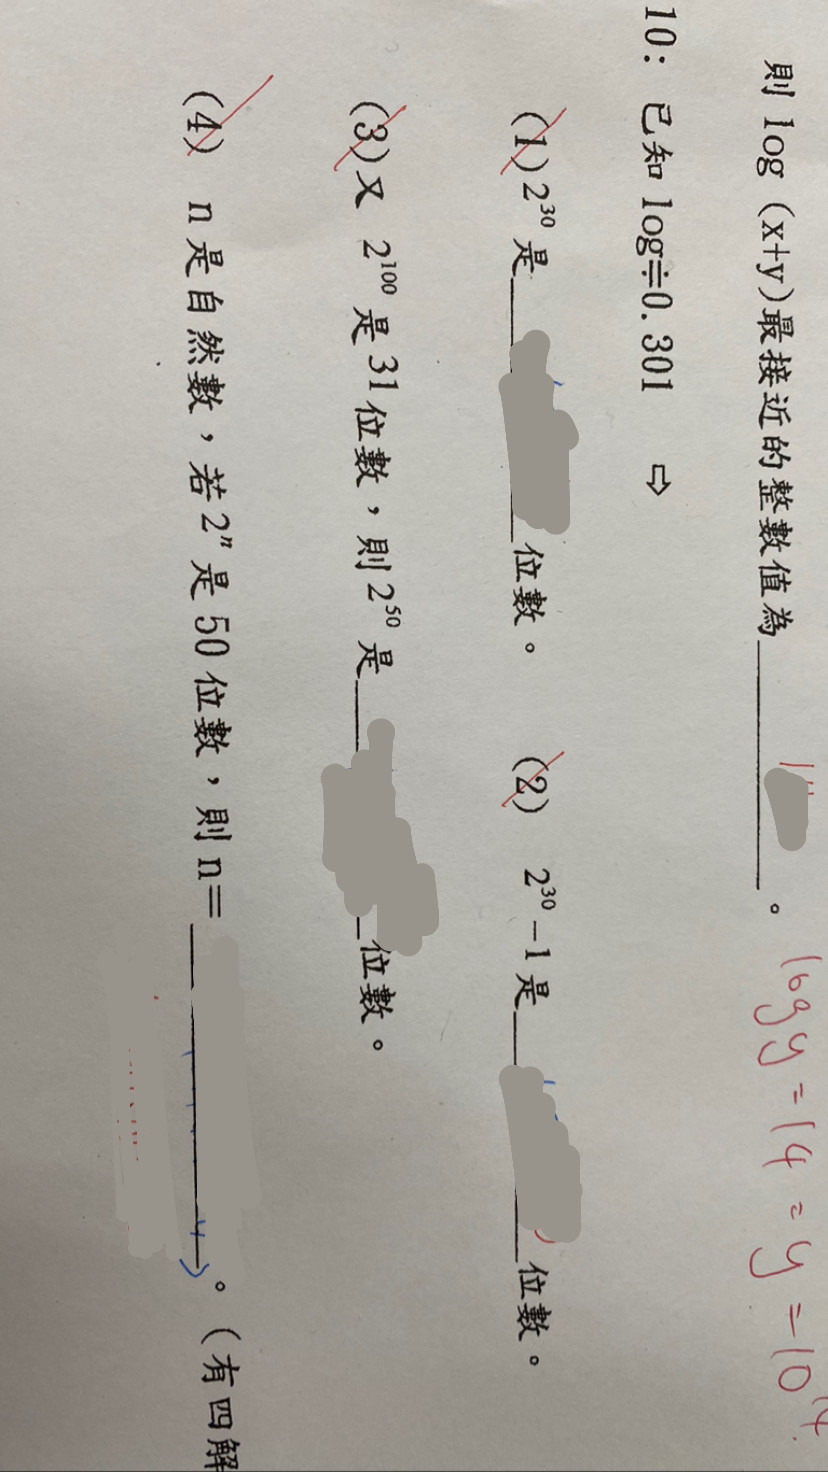 則 log (x+y)最接近的整數值為________。
logy=14=y=10¹⁴
10: 已知 log≑0.301 ⇨
(1)2³⁰是________位數。 (2) 2³⁰-1是________位數。
(3)又 2¹⁰⁰是31位數，則2⁵⁰是________位數。
(4) n是自然數，若2ⁿ是50位數，則n=________。(有四解